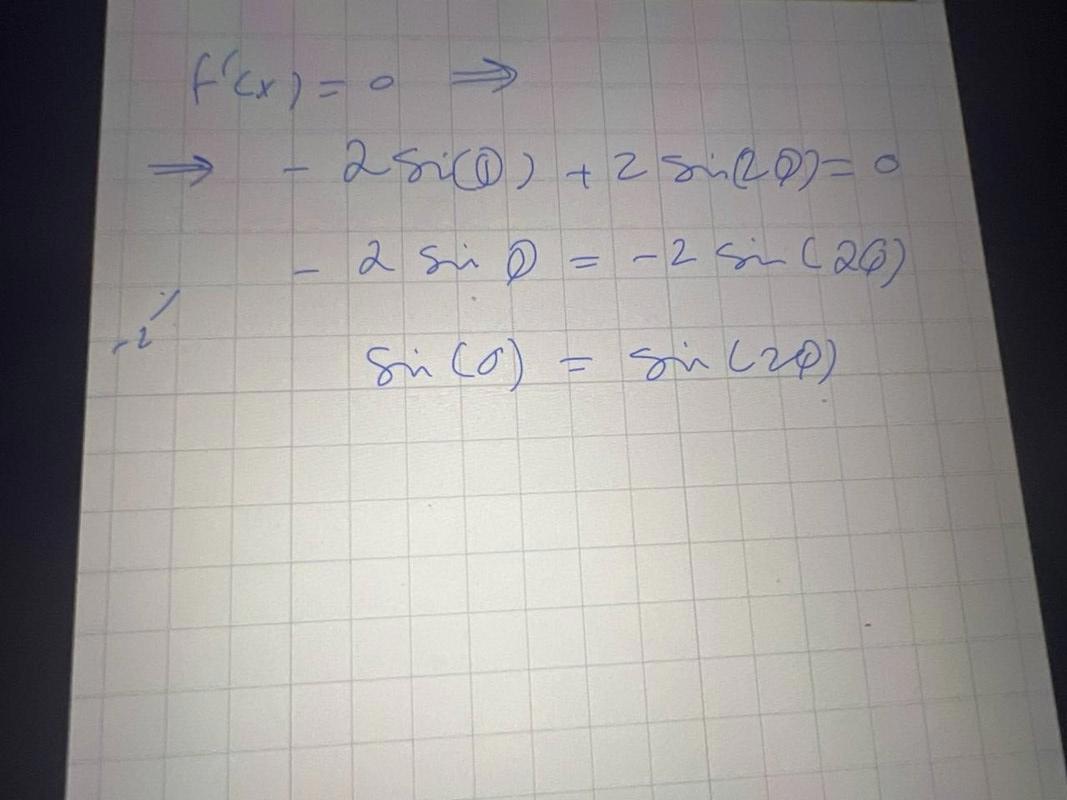 f'(x) = 0 ⇒
⇒ - 2 sin(θ) + 2 sin(2θ) = 0
- 2 sin θ = -2 sin (2θ)
-2 /
sin (θ) = sin (2θ)